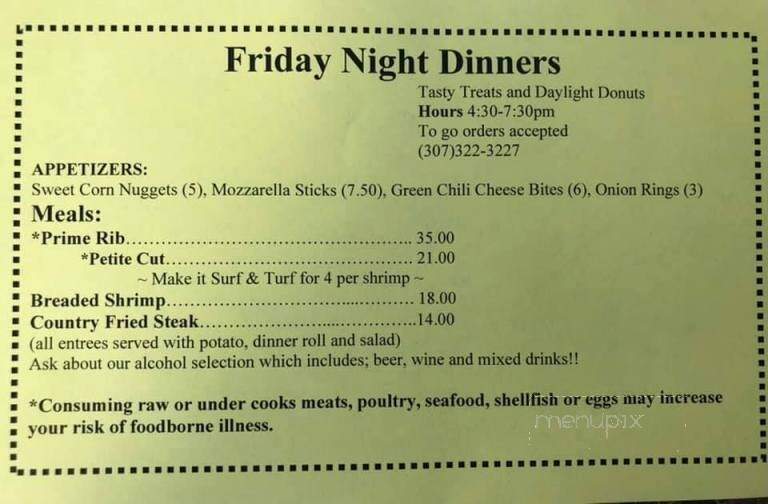 Friday Night Dinners
Tasty Treats and Daylight Donuts
Hours 4:30-7:30pm
To go orders accepted
(307)322-3227
APPETIZERS:
Sweet Corn Nuggets (5), Mozzarella Sticks (7.50), Green Chili Cheese Bites (6), Onion Rings (3)
Meals:
*Prime Rib................................................. 35.00
*Petite Cut.......................................... 21.00
~ Make it Surf & Turf for 4 per shrimp ~
Breaded Shrimp.......................................... 18.00
Country Fried Steak.....................................14.00
(all entrees served with potato, dinner roll and salad)
Ask about our alcohol selection which includes; beer, wine and mixed drinks!!
*Consuming raw or under cooks meats, poultry, seafood, shellfish or eggs may increase
your risk of foodborne illness.
menupix